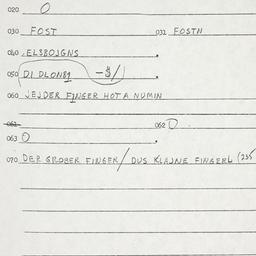 020 O
030 FOST 031 FOSTN
040 .ELSBOJGNS.
050 DI DLON81 -$/.
060 JEJDER FINGER HOT A NUMIN
061 062 O
063 O.
070 DER GROBER FINGER / DUS KLAJNE FINGERL (235